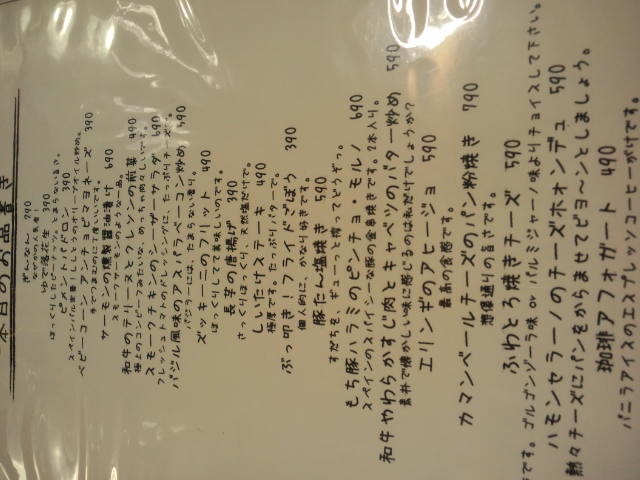 本日のお品書き
ぎんなん 290
なぜかの人気者!
ゆで落花生 390
ほっくりしたピーナッツ、たまらない旨さ。
ピメントパドロン 390
スペイン版定番ししとうのオリーブオイル炒め。
ベビーコーンのチリマヨネーズ 390
手でつまむのにて度いいです。
サーモンの燻製醤油漬け 690
スモークサーモンのような一品。
和牛のテリーヌとクレソンの煎菜 490
極上のコンビーフみたいな、めっちゃ肉々しいです。
スモークチキンのシーザーサラダ 690
フレッシュトマトのドレッシングに、たっぷりチーズで。
バジル風味のアスパラベーコン炒め 590
バジラーには、たまらない香り。
ズッキーニのフリット 490
ほっくりしてて美味しいのです。
長芋の唐揚げ 390
さっくりほっくり、天然塩だけで。
しいたけステーキ 490
極厚です。たっぷりバターで。
ぶっ叩き!フライドごぼう 390
個人的に、かなり好きです。
豚たん塩焼き 590
すだちを、ギューっと搾ってどうぞっ。
もち豚ハラミのピンチョ・モルノ 690
スペインのスパイシーな豚の金串焼きです。2本入り。
和牛やわらかすじ肉とキャベツのバター炒め 590
素朴で懐かしい味に感じるのは私だけでしょうか?
エリンギのアヒージョ 590
最高の食感です。
カマンベールチーズのパン粉焼き 790
想像通りの旨さです。
ふわとろ焼きチーズ 590
です。ゴルゴンゾーラ味orパルミジャーノ味よりチョイスして下さい。
ハモンセラーノのチーズホォンデュ 590
熱々チーズにパンをからませてビヨ~ンとしましょう。
珈琲アフォガート 490
バニラアイスのエスプレッソコーヒーがけです。